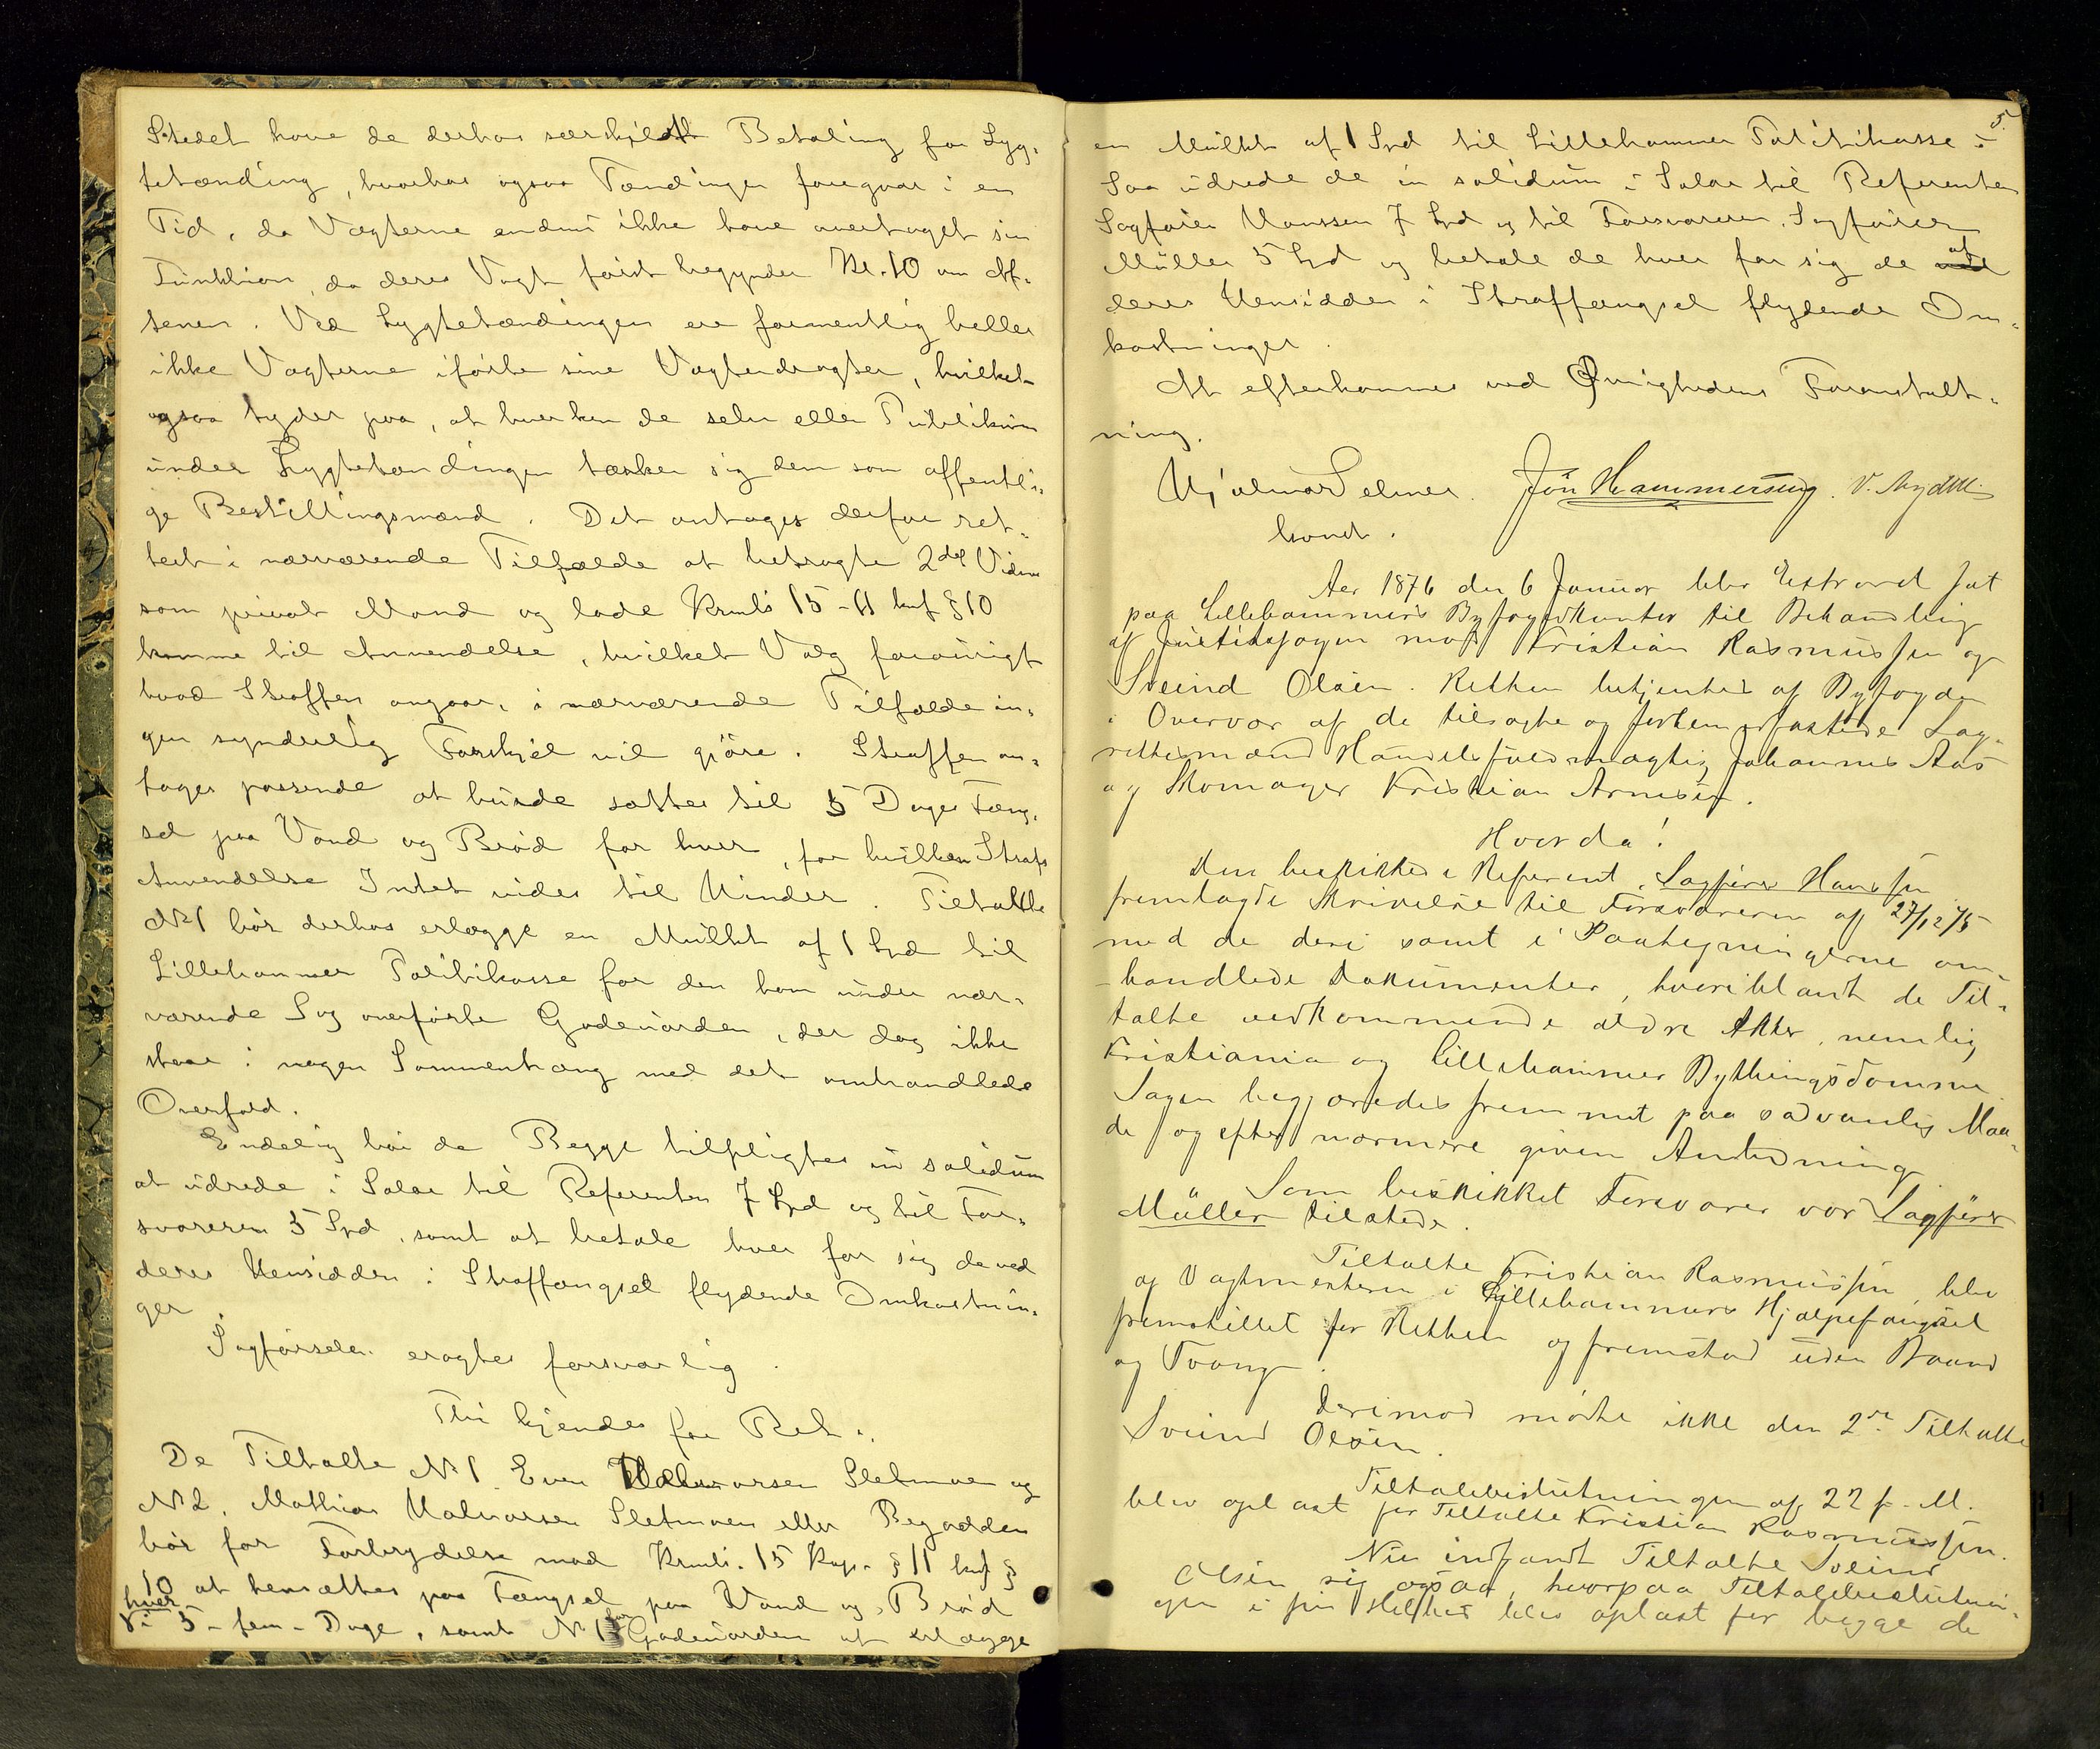 Stedet have de derhos særskildt Betaling for Lyg-
tetænding, hvorhos ogsaa Tændingen foregaar i en
Tid, da Vægterne endnu ikke have overtaget sin
Funktion, da deres Vagt først begynder Kl. 10 om Af-
tenen. Ved Lygtetændingen ere formentlig heller
ikke Vægterne iførte sine Vægterdragter, hvilket
ogsaa tyder paa, at hverken de selv eller Publikum
under Lygtetændingen tænker sig dem som offentli-
ge Bestillingsmænd. Det antages derfor ret-
test i nærværende Tilfælde at betragte 2det Vidne
som privat Mand og lade Krmls 15-11 knf § 10
komme til Anvendelse, hvilket Valg forøvrigt
hvad Straffen angaar, i nærværende Tilfælde in-
gen synderlig Forskjel vil gjøre. Straffen an-
tages passende at burde sættes til 5 Dages Fæng-
sel paa Vand og Brød for hver, for hvilken Strafs
Anvendelse Intet vides til Hinder. Tiltalte
No 1 bør derhos erlægge en Mulkt af 1 Spd til
Lillehammer Politikasse for den ham under nær-
værende Sag overførte Gadeuorden, der dog ikke
staar i nogen Sammenhæng med det omhandlede
Overfald.
Endelig bør de Begge tilpligtes in solidum
at udrede i Salær til Referenten 7 Spd og til For-
svareren 5 Spd, samt at betale hver for sig de ved
deres Hensidden i Straffængsel flydende Omkostnin-
ger.
Sagførselen eragtes forsvarlig.
Thi kjendes for Ret:
De Tiltalte No 1 Even Halvorsen Sletmoen og
No 2. Mathias Halvorsen Sletmoen eller Bergodden
bør for Forbrydelse mod Krmls. 15 Kap. § 11 knf §
10 at hensættes paa Fængsel paa Vand og Brød
hver
i 5 - fem - Dage, samt No 1 for Gadeuorden at erlægge
5.
en Mulkt af 1 Spd til Lillehammer Politikasse.
Saa udrede de in solidum i Salær til Referenten
Sagfører Hanssen 7 Spd og til Forsvareren, Sagfører
Müller 5 Spd og betale de hver for sig de af
deres Hensidden i Straffængsel flydende Om-
kostninger.
At efterkommes ved Øvrighedens Foranstalt-
ning.
Hjalmar Selmer. Jon Hammerseng.
konst.
Aar 1876 den 6 Januar blev Extraret sat
paa Lillehammers Byfogedkontor til Behandling
af Justitssagen mod Kristian Rasmussen og
Sveind Olsen. Retten betjentes af Byfogden
i Overvær af de tilsagte og forhen edfæstede Lag-
rettesmænd Handelsfuldmægtig Johannes Aas
og Skomager Kristian Arnesen.
Hvorda!
Den beskikkede Referent, Sagfører Hanssen
fremlagde Skrivelse til Forsvareren af 27/12 75
med de deri samt i Paategningerne om-
handlede Dokumenter, hvoriblant de Til-
talte vedkommende ældre Akter, nemlig
Kristiania og Lillehammer Bythingsdomme.
Sagen begjæredes fremmet paa sædvanlig Maa-
de og efter nærmere given Anledning.
Som beskikket Forsvarer var Sagfører
Müller tilstede.
Tiltalte Kristian Rasmussen blev
af Vagtmesteren i Lillehammers Hjælpefængsel
fremstillet for Retten og fremstod uden Baand
og Tvang.
Derimod mødte ikke den 2den Tiltalte
Sveind Olsen.
Tiltalebeslutningen af 22 f. M.
blev oplæst for Tiltalte Kristian Rasmussen.
Nu indfandt Tiltalte Sveind
Olsen sig ogsaa, hvorpaa Tiltalebeslutnin-
gen i sin Helhed blev oplæst for begge de